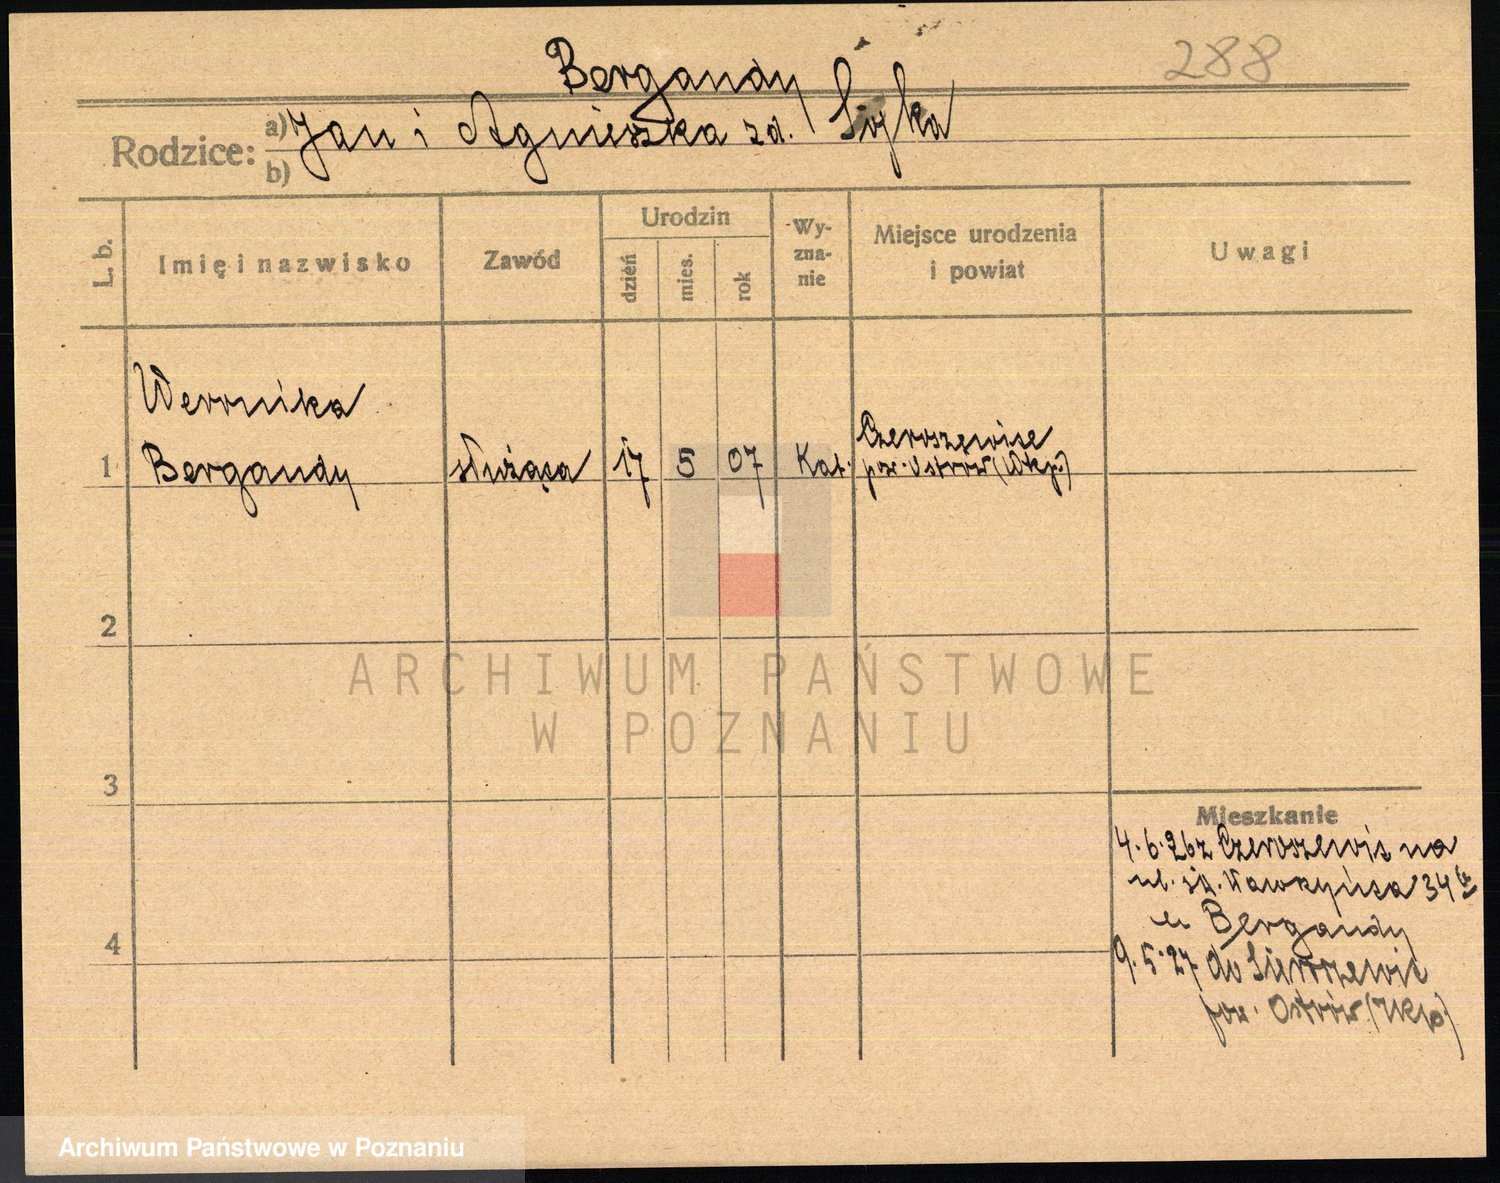 288
Bergandy
Rodzice: a) Jan i Agnieszka zd. Sojka
b)
L. b. Imię i nazwisko Zawód Urodzin dzień mies. rok Wy- zna- nie Miejsce urodzenia i powiat Uwagi
Weronika
1 Bergandy służąca 17 5 07 Kat. pow. Ostrów (Wkp.)
2
3
4
Mieszkanie
4.6.26 z na
ul. 34
u Bergandy
9.5.27 do
pow. Ostrów (Wkp.)
ARCHIWUM PAŃSTWOWE
W POZNANIU
Archiwum Państwowe w Poznaniu